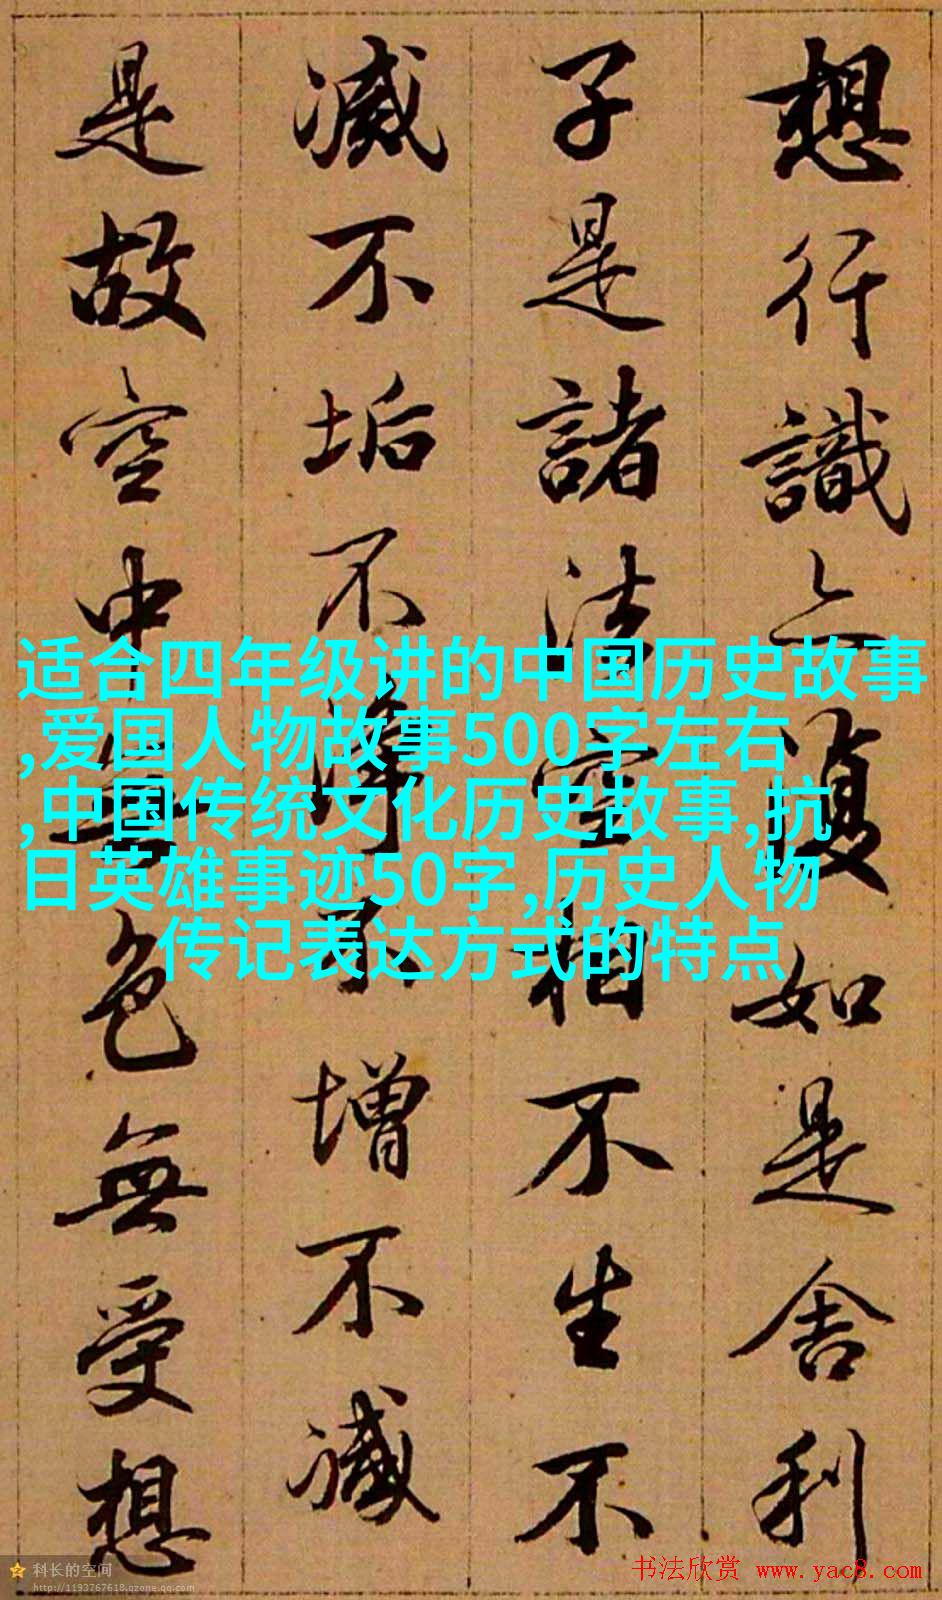 想行識亦復如是舍利
子是諸法空相不生不
滅不垢不淨不增不減
是故空中無色無受想
适合四年级讲的中国历史故事
,爱国人物故事500字左右
,中国传统文化历史故事,抗
日英雄事迹50字,历史人物
传记表达方式的特点
科长的空间
http://1193767618.qzone.qq.com
书法欣赏 www.yac8.com